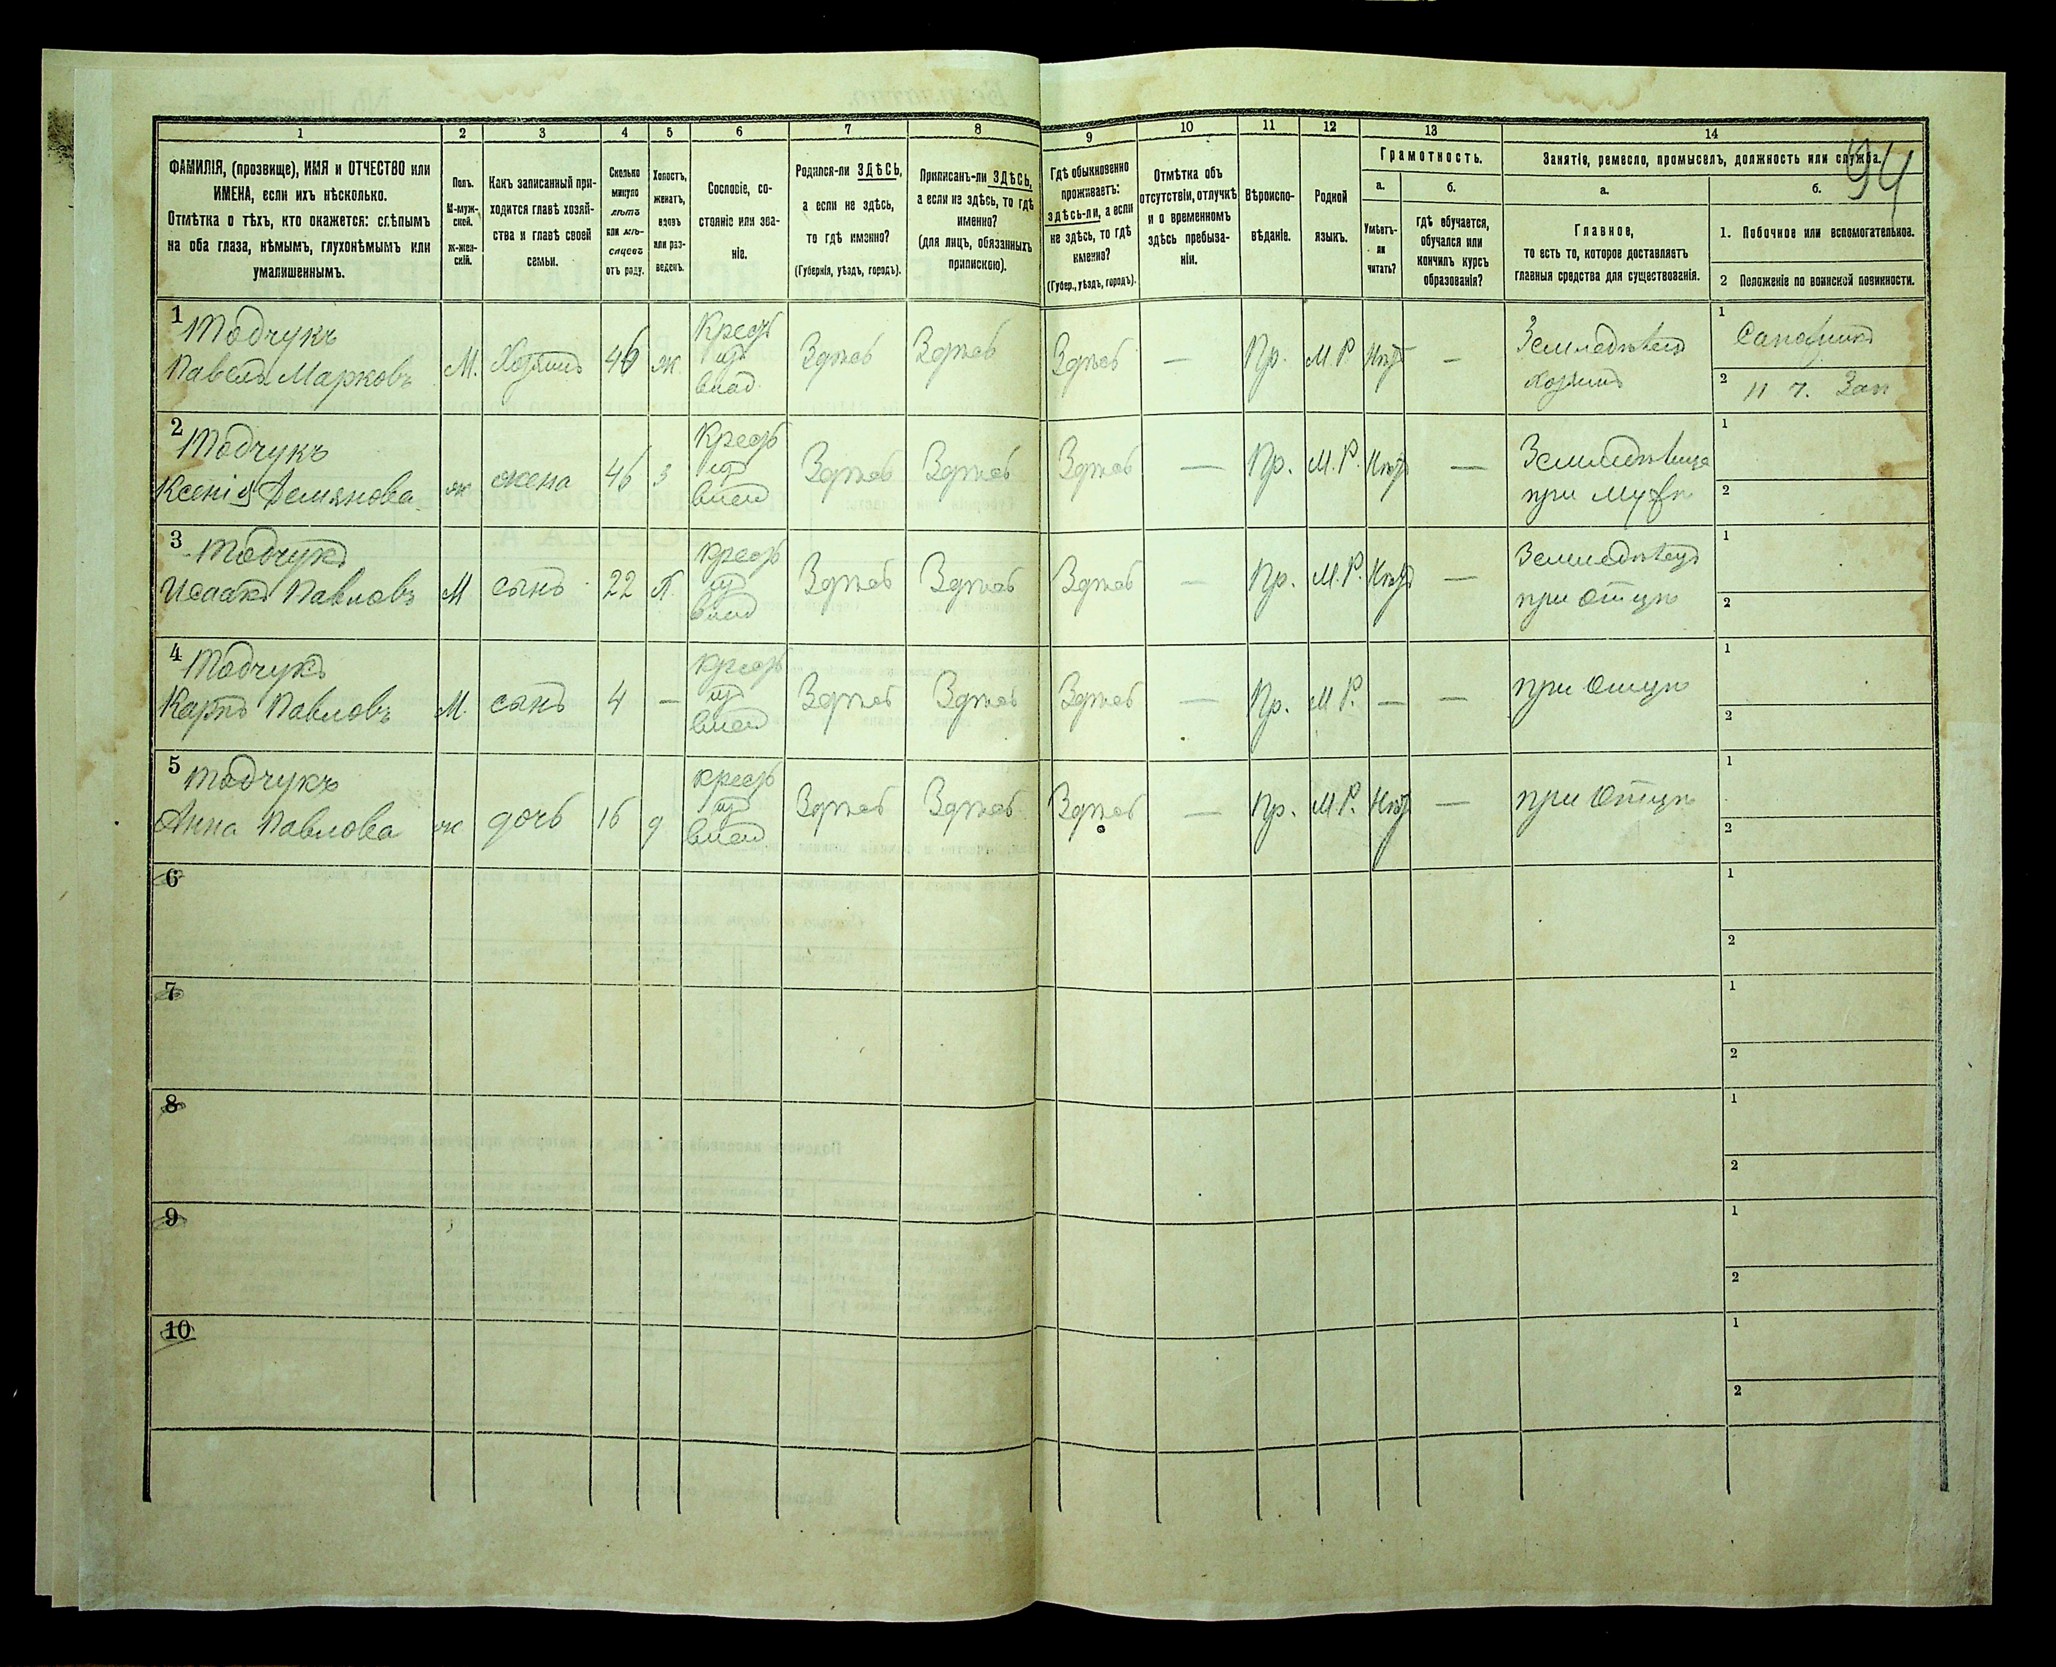 94
1 2 3 4 5 6 7 8 9 10 11 12 13 14
ФАМИЛІЯ, (прозвище), ИМЯ и ОТЧЕСТВО или
ИМЕНА, если ихъ нѣсколько.
Отмѣтка о тѣхъ, кто окажется: слѣпымъ
на оба глаза, нѣмымъ, глухонѣмымъ или
умалишеннымъ.
Полъ.
М-муж-
ской.
Ж-жен-
скій.
Какъ записанный при-
ходится главѣ хозяй-
ства и главѣ своей
семьи.
Сколько
минуло
лѣтъ
или мѣ-
сяцевъ
отъ роду.
Холостъ,
женатъ,
вдовъ
или раз-
веденъ.
Сословіе, со-
стояніе или зва-
ніе.
Родился-ли ЗДѢСЬ,
а если не здѣсь,
то гдѣ именно?
(Губернія, уѣздъ, городъ).
Приписанъ-ли ЗДѢСЬ,
а если не здѣсь, то гдѣ
именно?
(для лицъ, обязанныхъ
припискою).
Гдѣ обыкновенно
проживаетъ:
здѣсь-ли, а если
не здѣсь, то гдѣ
именно?
(Губер., уѣздъ, городъ).
Отмѣтка объ
отсутствіи, отлучкѣ
и о временномъ
здѣсь пребыва-
ніи.
Вѣроиспо-
вѣданіе.
Родной
языкъ.
Грамотность.
а.
Умѣетъ-
ли
читать?
б.
Гдѣ обучается,
обучался или
кончилъ курсъ
образованія?
Занятіе, ремесло, промыселъ, должность или служба.
а.
Главное,
то есть то, которое доставляетъ
главныя средства для существованія.
б.
1. Побочное или вспомогательное.
2 Положеніе по воинской повинности.
1
Павелъ Марковъ М. Хозяинъ 46 ж. Крест из влад. Здѣсь Здѣсь Здѣсь — Пр. М.Р. Нѣт —
Земледѣлецъ
хозяинъ
1
2
2
Ксенія Демянова ж жена 46 з Крест из влад Здѣсь Здѣсь Здѣсь — Пр. М.Р. Нѣт —
при мужѣ
1
2
3
Исаакъ Павловъ М сынъ 22 Крест из влад Здѣсь Здѣсь Здѣсь — Пр. М.Р. Нѣт —
Земледѣлецъ
при отцѣ
1
2
4
Карпъ Павловъ М. сынъ 4 — крест из влад Здѣсь Здѣсь Здѣсь — Пр. М Р. — —
при отцѣ
1
2
5
Анна Павлова ж дочь 16 д крест из влад Здѣсь Здѣсь Здѣсь — Пр. М.Р. Нѣт —
при отцѣ
1
2
6
1
2
7
1
2
8
1
2
9
1
2
10
1
2